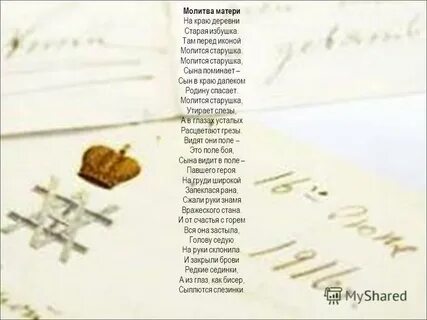 Молитва матери
На краю деревни
Старая избушка.
Там перед иконой
Молится старушка.
Молится старушка,
Сына поминает –
Сын в краю далеком
Родину спасает.
Молится старушка,
Утирает слезы,
А в глазах усталых
Расцветают грезы.
Видят они поле –
Это поле боя,
Сына видит в поле –
Павшего героя.
На груди широкой
Запеклася рана,
Сжали руки знамя
Вражеского стана.
И от счастья с горем
Вся она застыла,
Голову седую
На руки склонила.
И закрыли брови
Редкие сединки,
А из глаз, как бисер,
Сыплются слезинки.
1916
MyShared